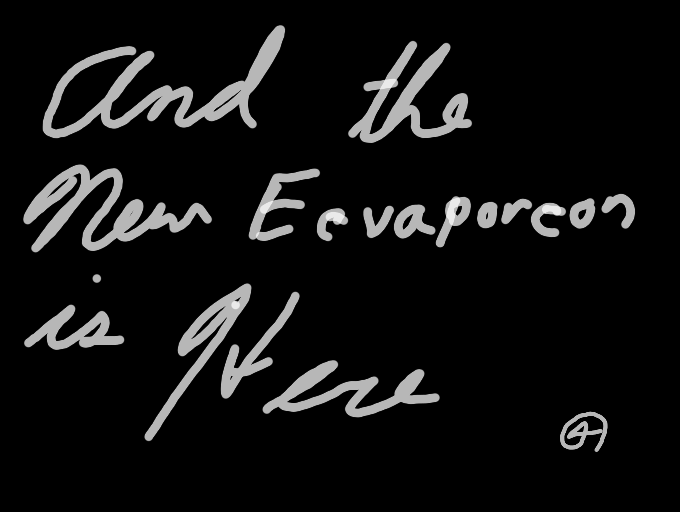 And the
New Eevaporeon
is Here